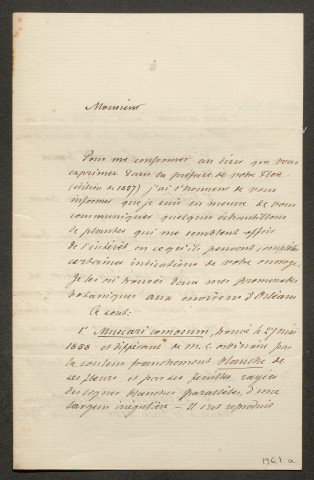 Monsieur
Pour me conformer au désir que vous
exprimez dans la préface de votre Flore
(édition de 1887) j'ai l'honneur de vous
informer que je suis en mesure de vous
communiquer quelques échantillons
de plantes qui me semblent offrir
de l'intérêt en ce qu'ils peuvent compléter
certaines indications de votre ouvrage.
Je les ai trouvés dans mes promenades
botaniques aux environs d'Orléans
Ce sont:
1° Muscari comosum, trouvé le 27 mai
1888 et différant de M. C. ordinaire par
la couleur franchement blanche de
ses fleurs et par des feuilles rayées
de lignes blanches parallèles, d'une
largeur irrégulière — Il s'est reproduit
196.1.a